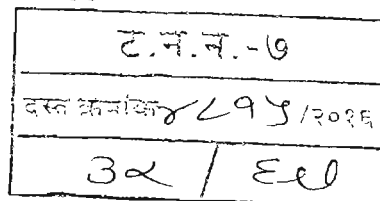 ट.न.न.-७
दस्त क्रमांक ४८१५/२०१६
३२ / ६७